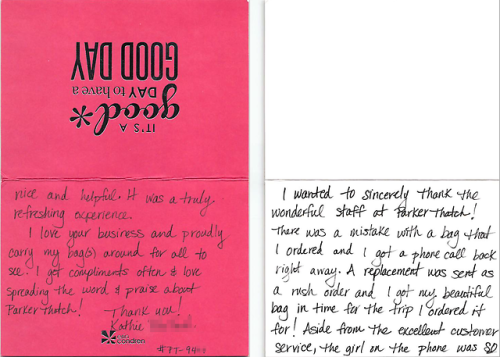 IT'S A
good*
DAY to have a
GOOD DAY
I wanted to sincerely thank the
wonderful staff at Parker Thatch!
There was a mistake with a bag that
I ordered and I got a phone call back
right away. A replacement was sent as
a rush order and I got my beautiful
bag in time for the trip I ordered it
for! Aside from the excellent customer
service, the girl on the phone was SO
nice and helpful. It was a truly
refreshing experience.
I love your business and proudly
carry my bag(s) around for all to
see. I get compliments often & love
spreading the word & praise about
Parker Thatch!
Thank you!
Kathie
condren
#77-94